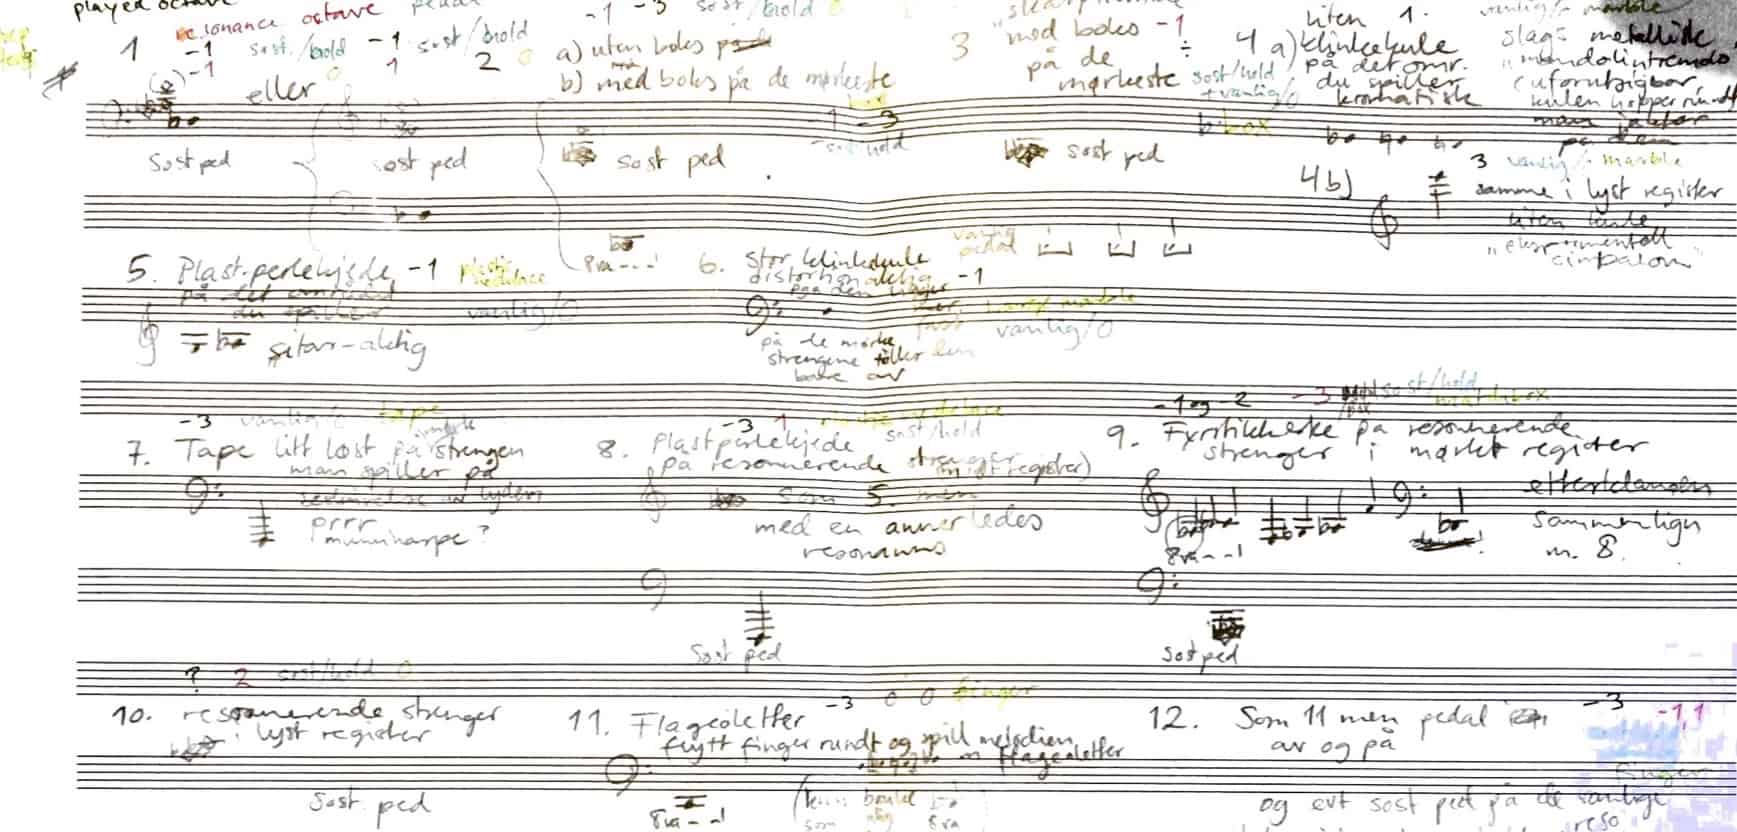 played octave
resonance octave pedal
1 -1 sost./hold -1 sost/hold
-1 0 1 2 0
eller
Sost ped
sost ped
-1 -3 sost/hold 0
a) uten boks
b) med boks på de mørkeste
-1 -3
sost hold
sost ped
8va---
3 med boks -1
på de
mørkeste sost/hold
+ vanlig/0
sost ped
vanlig
pedal
uten 1.
4 a) klinkekule
på det omr.
du spiller
kromatisk
box
vanlig/- marble
slags metallisk
"mandolintremolo"
(uforutsigbar,
kulen hopper rundt
man jakter
på den
4b)
3 vanlig/- marble
samme i lyst register
uten kule
"eksperimentell
cimbalom"
5. Plast-perlekjede -1 plastic necklace
på det området
du spiller vanlig/0
sitar-aktig
6. Stor klinkekule
distortion aktig -1
large marble
vanlig/0
på de mørke
strengene faller den
bare av
-3 vanlig/0 tape
7. Tape litt løst på strengen
man spiller på
prrr
munnharpe?
-3 1 necklace
sost/hold
8. Plastperlekjede
på resonnerende strenger
register)
som 5 men
med en annerledes
resonanns
Sost ped
-1 og -2 -3 sost/hold
matchbox
9. Fyrstikkeske på resonnerende
strenger i mørkt register
etterklangen
Sammenlign
m. 8.
8va---
Sost ped
? 2 sost/hold 0
10. resonnerende strenger
i lyst register
Sost. ped
11. Flageoletter -3 0 0 finger
flytt finger rundt og spill melodien
m flageoletter
8va---
som 8va
12. Som 11 men pedal -3 -1,1
av og på
finger
og evt sost ped på de vanlige
reso